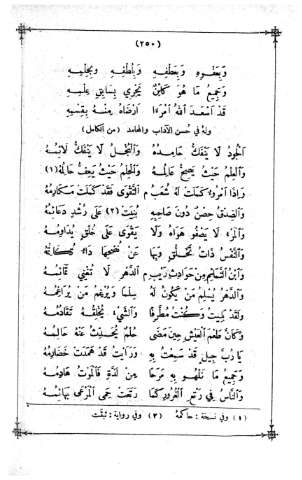 (٢٥٠)
وَبِعَفْوِهِ وَبِعَطْفِهِ وَبِلُطْفِهِ وَبِحِلْمِهِ
وَجَمِيعُ مَا هُوَ كَائِنٌ يَجْرِي بِسَابِقِ عِلْمِهِ
قَدْ أَسْعَدَ اللهُ امْرَءًا أَرْضَاهُ مِنْهُ بِقِسْمِهِ
وله في حسن الآداب والمحامد (من الكامل)
اَلْجُودُ لَا يَنْفَكُّ حَامِدُهُ وَالْبُخْلُ لَا يَنْفَكُّ لَائِمُهُ
وَالْعِلْمُ حَيْثُ يَصِحُّ عَالِمُهُ وَالْحِلْمُ حَيْثُ يَعِفُّ حَالِمُهُ (١)
وَإِذَا امْرُؤٌ كَمُلَتْ لَهُ شُعَبُ م التَّقْوَى فَقَدْ كَمُلَتْ مَكَارِمُهُ
وَالصِّدْقُ حِصْنٌ دُونَ صَاحِبِهِ بُنِيَتْ (٢) عَلَى رُشْدٍ دَعَائِمُهُ
وَالْمَرْءُ لَا يَصْفُو هَوَاهُ وَلَا يَقْوَى عَلَى خُلُقٍ يُدَاوِمُهُ
وَالنَّفْسُ ذَاتُ تَخَلُّقٍ وَبِهَا عَنْ نُصْحِهَا دَاءٌ تُكَاتِمُهُ
وَابْنُ التَّمَائِمِ مِنْ حَوَادِثِ رَيْبِ م الدَّهْرِ لَا تُغْنِي تَمَائِمُهُ
وَالدَّهْرُ يُسْلِمُ مَنْ يَكُونُ لَهُ سِلْمًا وَيُرْغِمُ مَنْ يُرَاغِمُهُ
وَلَقَدْ بَلِيتُ وَكُنْتُ مُطَّرِفًا وَالشَّيْءُ يُخْلِقُهُ تَقَادُمُهُ
وَكَأَنَّ طَعْمَ الْعَيْشِ حِينَ مَضَى حُلْمٌ يُحَدِّثُ عَنْهُ حَالِمُهُ
يَا رُبَّ جِيلٍ قَدْ سَمِعْتُ بِهِ وَرَأَيْتُ قَدْ هَمَدَتْ خَضَارِمُهُ
وَجَمِيعُ مَا نَلْهُو بِهِ مَرَحًا مِنْ لَذَّةٍ فَالْمَوْتُ هَادِمُهُ
وَالنَّاسُ فِي رَتْعِ الْغُرُورِ كَمَا رَتَعَتْ حِمَى الْمَرْعَى بَهَائِمُهُ
(١) وفي نسخة: حاكمه (٢) وفي رواية: ثبتت